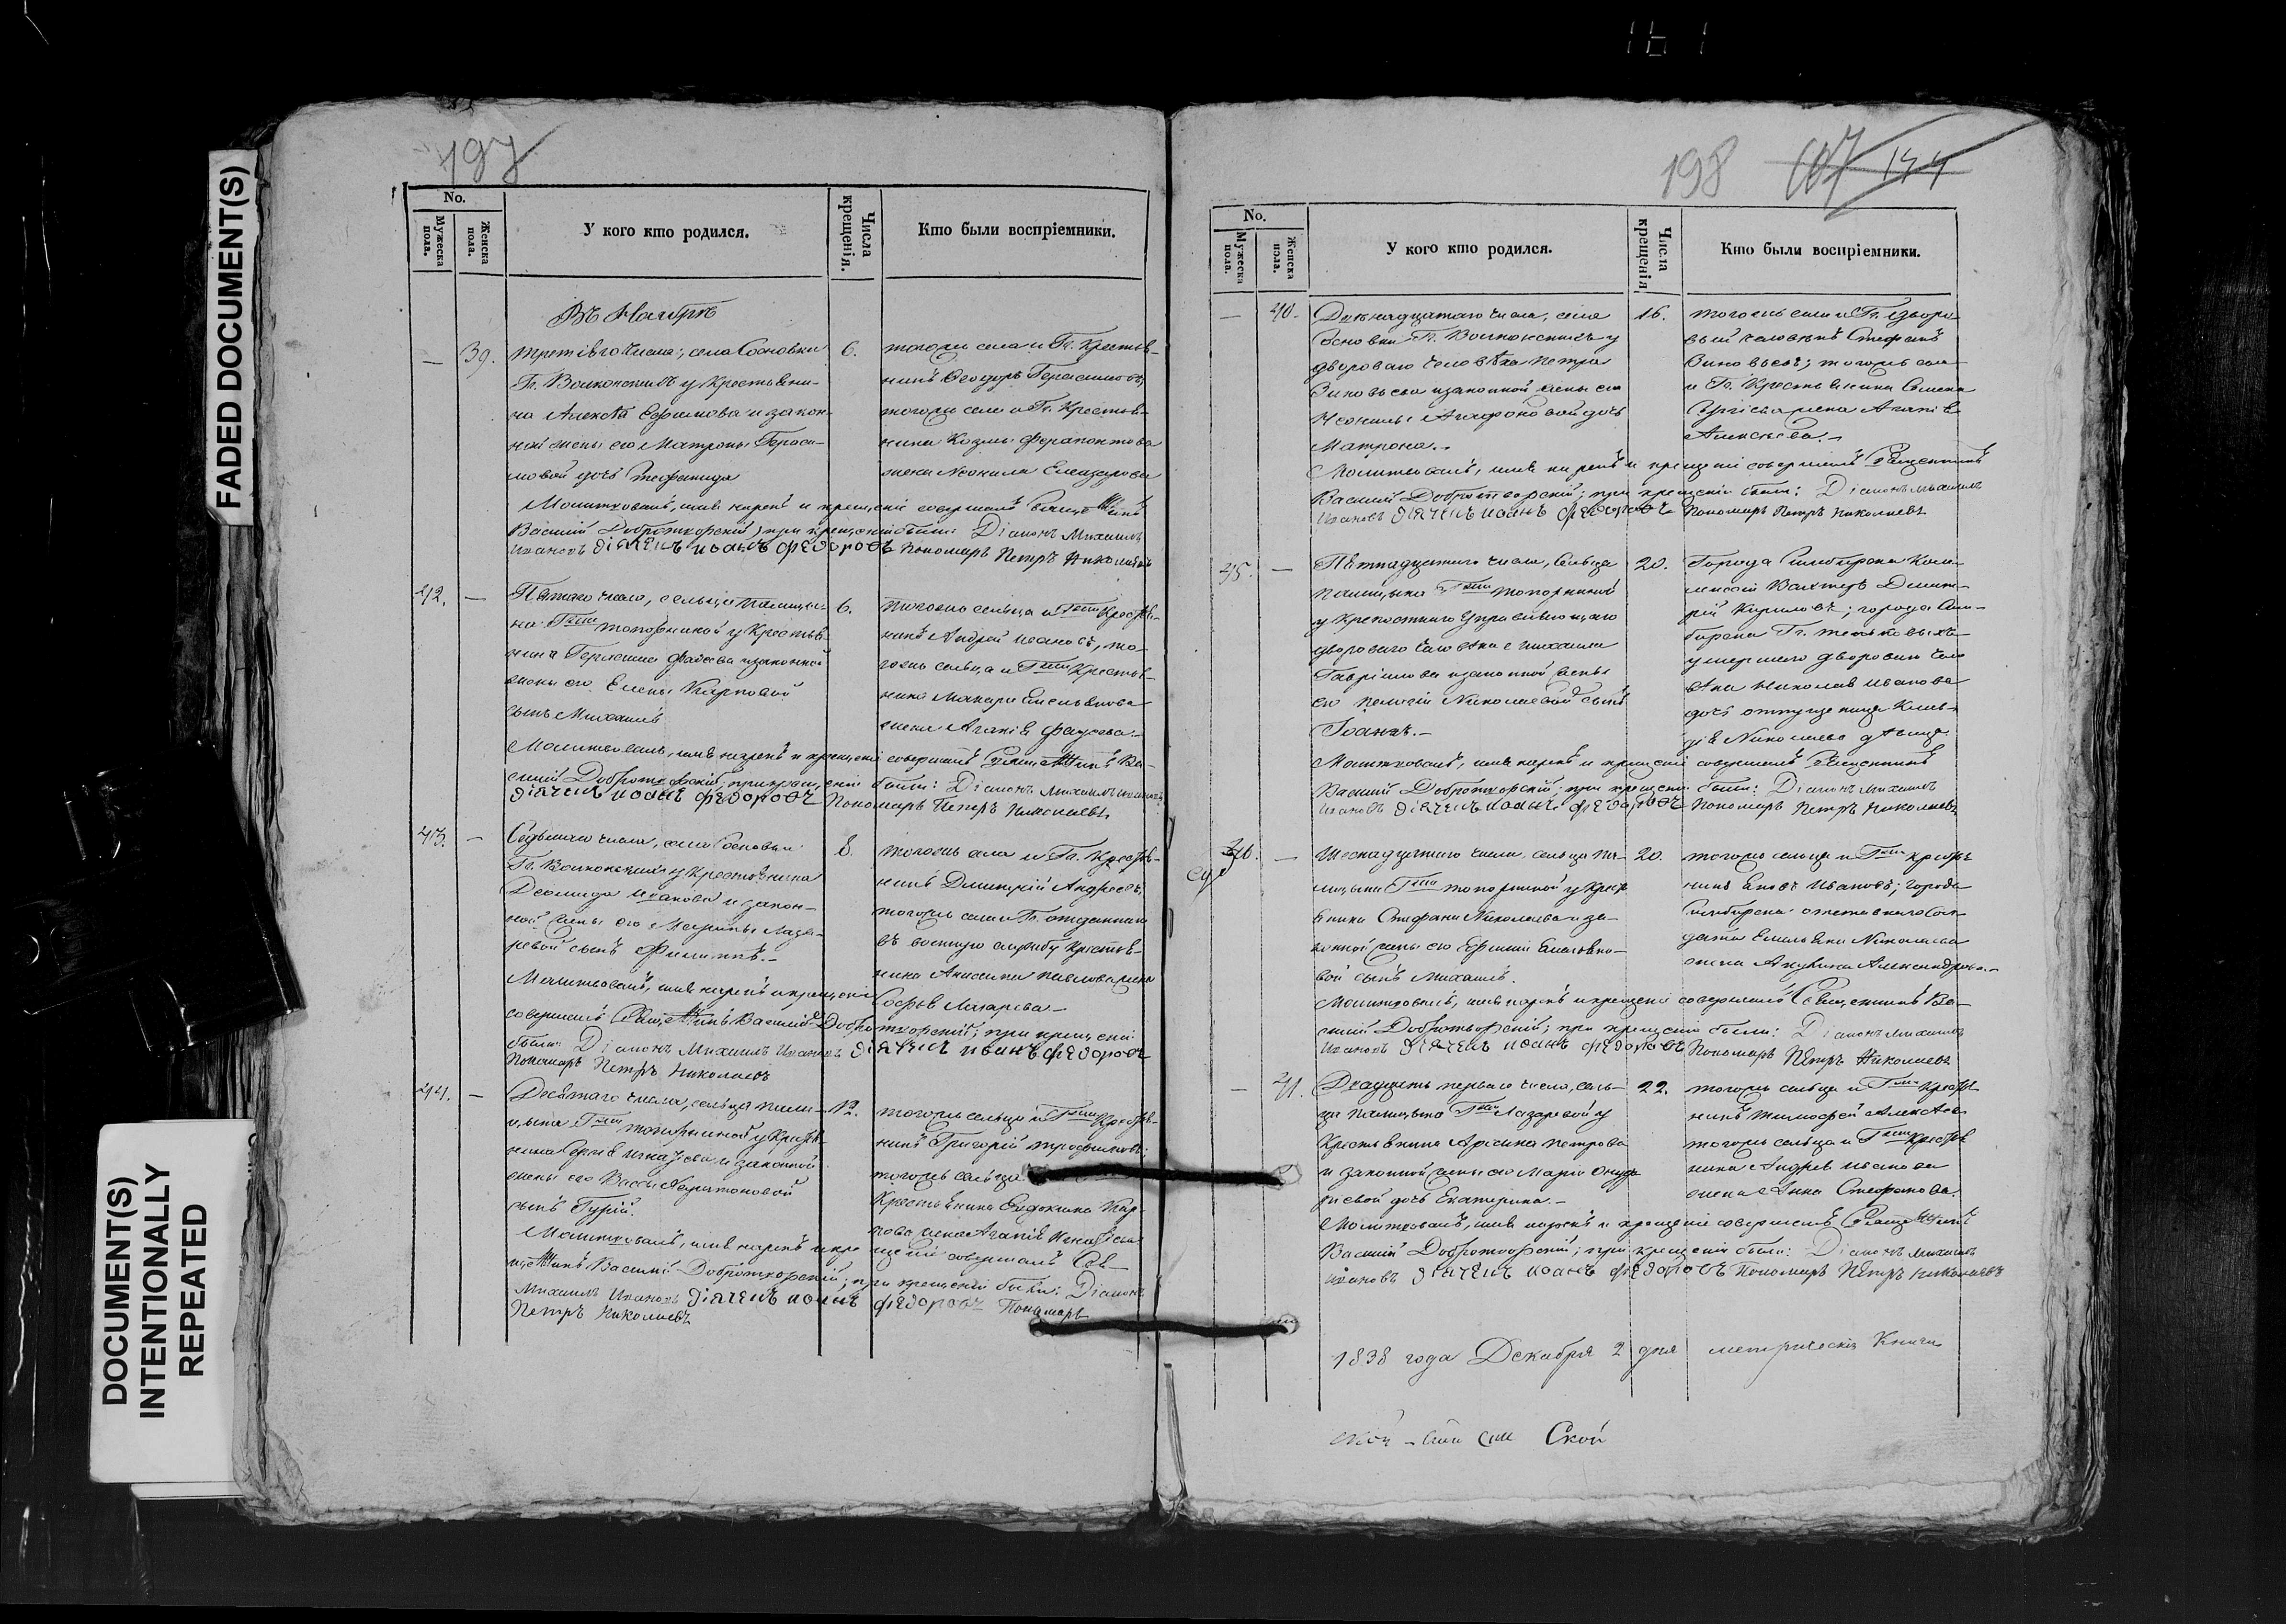 161
FADED DOCUMENT(S)
DOCUMENT(S)
INTENTIONALLY
REPEATED
197
No.
Мужеска пола.
Женска пола.
У кого кто родился.
Числа крещенія.
Кто были воспріемники.
Въ Ноябрѣ
— 39.
третьяго числа, села Сосновки
Гг. Волконскихъ у крестьяни-
на Алексѣя Ефимова и закон-
ной жены его Матроны Гераси-
мовой дочь Стефанида
6.
тогожъ села и Гг. Крестья-
нинъ Ѳеодоръ Герасимовъ,
тогожъ села и Гг. Крестья-
нина Козмы Ферапонтова
жена Неонила Елеазарова
Молитвовалъ, имя нарекъ и крещеніе совершалъ Священникъ
Василій Добротворскій; при крещеніи были: Діаконъ Михаилъ
Ивановъ діячекъ иоанъ федоровъ Пономарь Петръ Николаевъ
42. —
Пятаго числа, сельца Паницы-
на Гжи Топорниной у Крестья-
нина Герасима Фадеева и законной
жены его Елены Карповой
сынъ Михаилъ
6.
тогожъ сельца и Гжи Крестья-
нинъ Андрей Ивановъ, то-
гожъ сельца и Гжи Крестья-
нина Макара Емельянова
жена Агапія Фадеева.
Молитвовалъ, имя нарекъ и крещеніе совершалъ Священникъ Ва-
силій Добротворскій; при крещеніи были: Діаконъ Михаилъ Ивановъ
діячекъ иоанъ федоровъ Пономарь Петръ Николаевъ
43. —
Седьмаго числа, села Сосновки
Гг. Волконскихъ у крестьянина
Деомида Иванова и закон-
ной жены его Марины Лаза-
ревой сынъ Филиппъ.—
8.
тогожъ села и Гг. Крестья-
нинъ Димитрій Андреевъ,
тогожъ села и Гг. отданнаго
въ военную службу крестья-
нина Анисима Павлова жена
Софья Лазарева.—
Молитвовалъ, имя нарекъ и крещеніе
совершалъ Священникъ Василій Добротворскій; при крещеніи
были: Діаконъ Михаилъ Ивановъ діячекъ иоанъ федоровъ
Пономарь Петръ Николаевъ
44. —
Десятаго числа, сельца Пани-
цына Гжи Топорниной у Крестья-
нина Сергѣя Игнатьева и законной
жены его Вассы Харитоновой
сынъ Гурій.
12.
тогожъ сельца и Гжи Крестья-
нинъ Григорій Трофимовъ;
тогожъ сельца
Крестьянина Евдокима Кар-
пова жена Агапія Игнатьева
Молитвовалъ, имя нарекъ и кре щеніе совершалъ Свя-
щенникъ Василій Добротворскій; при крещеніи были: Діаконъ
Михаилъ Ивановъ діячекъ иоанъ федоровъ Пономарь
Петръ Николаевъ
198 107 144
No.
Мужеска пола.
Женска пола.
У кого кто родился.
Числа крещенія
Кто были воспріемники.
— 40.
Двенадцатаго числа, села
Сосновки Гг. Волконскихъ у
двороваго человѣка Петра
Зиновьева и законной жены его
Неонилы Агафоновой дочь
Матрона.—
16.
тогожъ села и Гг. дворо-
вый человѣкъ Стефанъ
Зиновьевъ; тогожъ села
и Гг. Крестьянина Семена
Сергѣева жена Агапія
Алексѣева.—
Молитвовалъ, имя нарекъ и крещеніе совершалъ Священникъ
Василій Добротворскій; при крещеніи были: Діаконъ Михаилъ
Ивановъ діячекъ иоанъ федоровъ Пономарь Петръ Николаевъ
45. —
Пятнадцатаго числа, сельца
Паницына Гжи Топорниной
у крепостнаго управляющаго
двороваго человѣка Михаила
Гаврилова и законной жены
его Пелагіи Николаевой сынъ
Іоаннъ.—
20.
Города Симбирска
Вахтеръ Димит-
рій Кириловъ; города Сим-
бирска Гг.
умершаго двороваго чело
вѣка Николая Иванова
дочь
Николаева дѣвица
Молитвовалъ, имя нарекъ и крещеніе совершалъ Священникъ
Василій Добротворскій; при крещеніи были: Діаконъ Михаилъ
Ивановъ діячекъ иоанъ федоровъ Пономарь Петръ Николаевъ
46. —
Шеснадцатаго числа, сельца Па-
ницына Гжи Топорниной у крест
янина Стефана Николаева и за-
конной жены его Ефиміи Емельяно-
вой сынъ Михаилъ.
20.
тогожъ сельца и Гжи крестья
нинъ Ивановъ; города
Симбирска отставнаго сол-
дата Емельяна Николаева
жена Акулина Александрова.—
Молитвовалъ, имя нарекъ и крещеніе совершалъ Священникъ Ва-
силій Добротворскій; при крещеніи были: Діаконъ Михаилъ
Ивановъ діячекъ иоанъ федоровъ Пономарь Петръ Николаевъ
— 41.
Двадцать перваго числа, сель-
ца Паницына Гжи Лазаревой у
Крестьянина Петрова
и законной жены его Маріи Онуф
ріевой дочь Екатерина.—
22.
тогожъ сельца и Гжи Крестья
нинъ Тимофей Алексѣев
тогожъ сельца и Гжи Крестья
нина Андрея Иванова
жена Анна Стефанова.
Молитвовалъ, имя нарекъ и крещеніе совершалъ Священникъ
Василій Добротворскій; при крещеніи были: Діаконъ Михаилъ
Ивановъ діячекъ иоанъ федоровъ Пономарь Петръ Николаевъ
1838 года Декабря 2 дня метрическія Книги
Ской